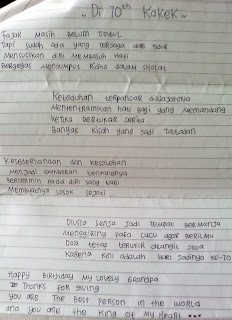 ~ Di 70th Kakek ~
Fajar masih belum timbul
Tapi sudah ada yang terjaga dari tidur
Mensucikan diri membasuh hati
Bergegas menjumput Ridho dalam sholat
Keteduhan terpancar diwajahnya
Mententramkan hati bagi yang memandang
Ketika bertukar cerita
Banyak kisah yang jadi tauladan
Kesederhanaan dan kesolehan
Menjadi gambaran tentangnya
Tercermin pada diri sang kaki
Membuatnya sosok sejati
Diusia senja jadi tempat bermanja
Menggiring para cucu agar berilmu
Doa tetap terukir dilangit jiwa
Karena kini adalah hari jadinya ke-70
Happy Birthday My Lovely Grandpa
Thanks for giving
you are The Best person in the world
and you are the King of My Heart ...